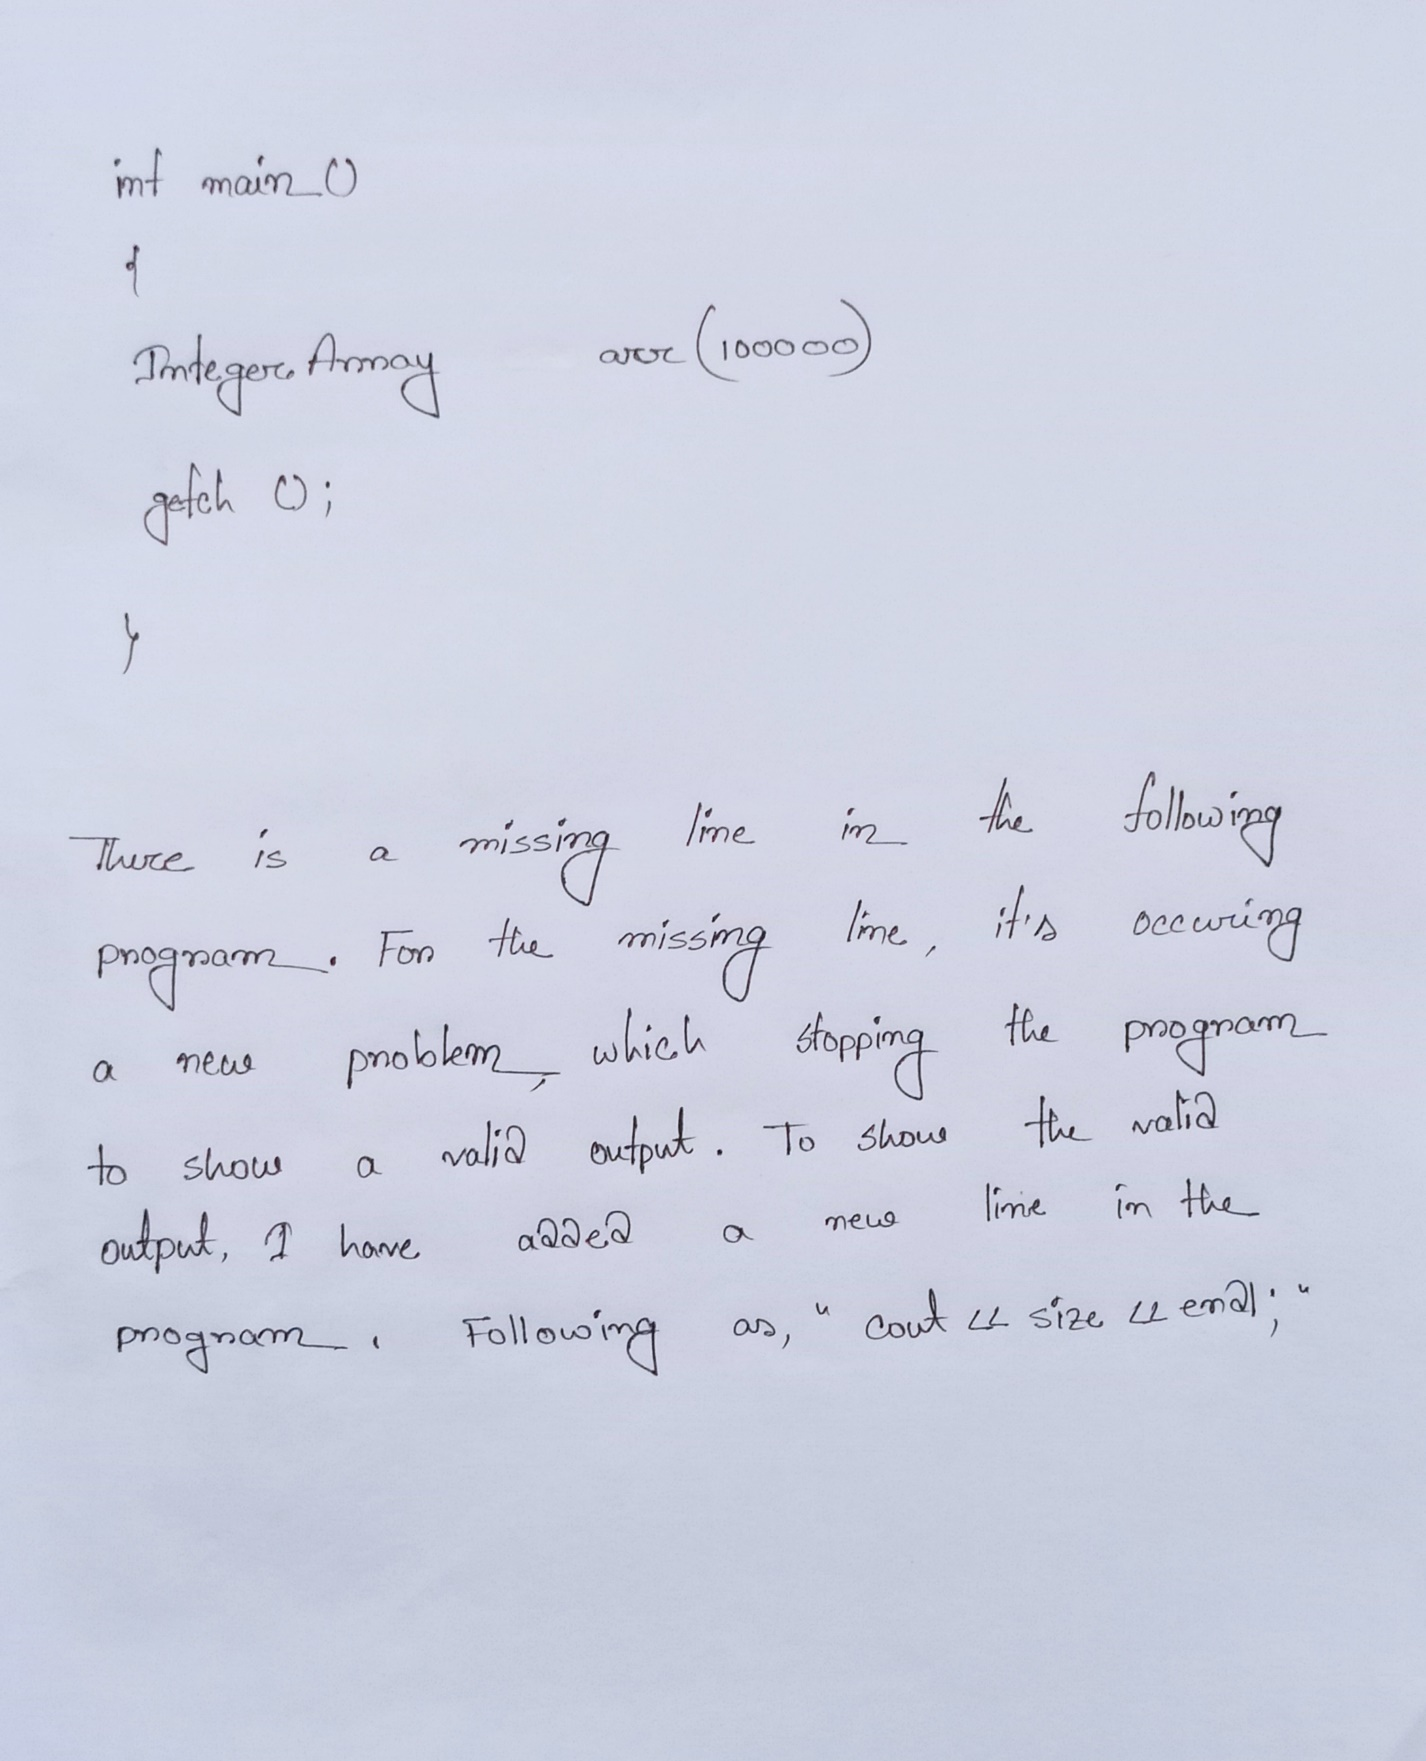 int main ()
{
Integer Array arr (100000)
getch ();
}
There is a missing line in the following
program. For the missing line, it's occuring
a new problem, which stopping the program
to show a valid output. To show the valid
output, I have added a new line in the
program. Following as, "cout << size << endl;"